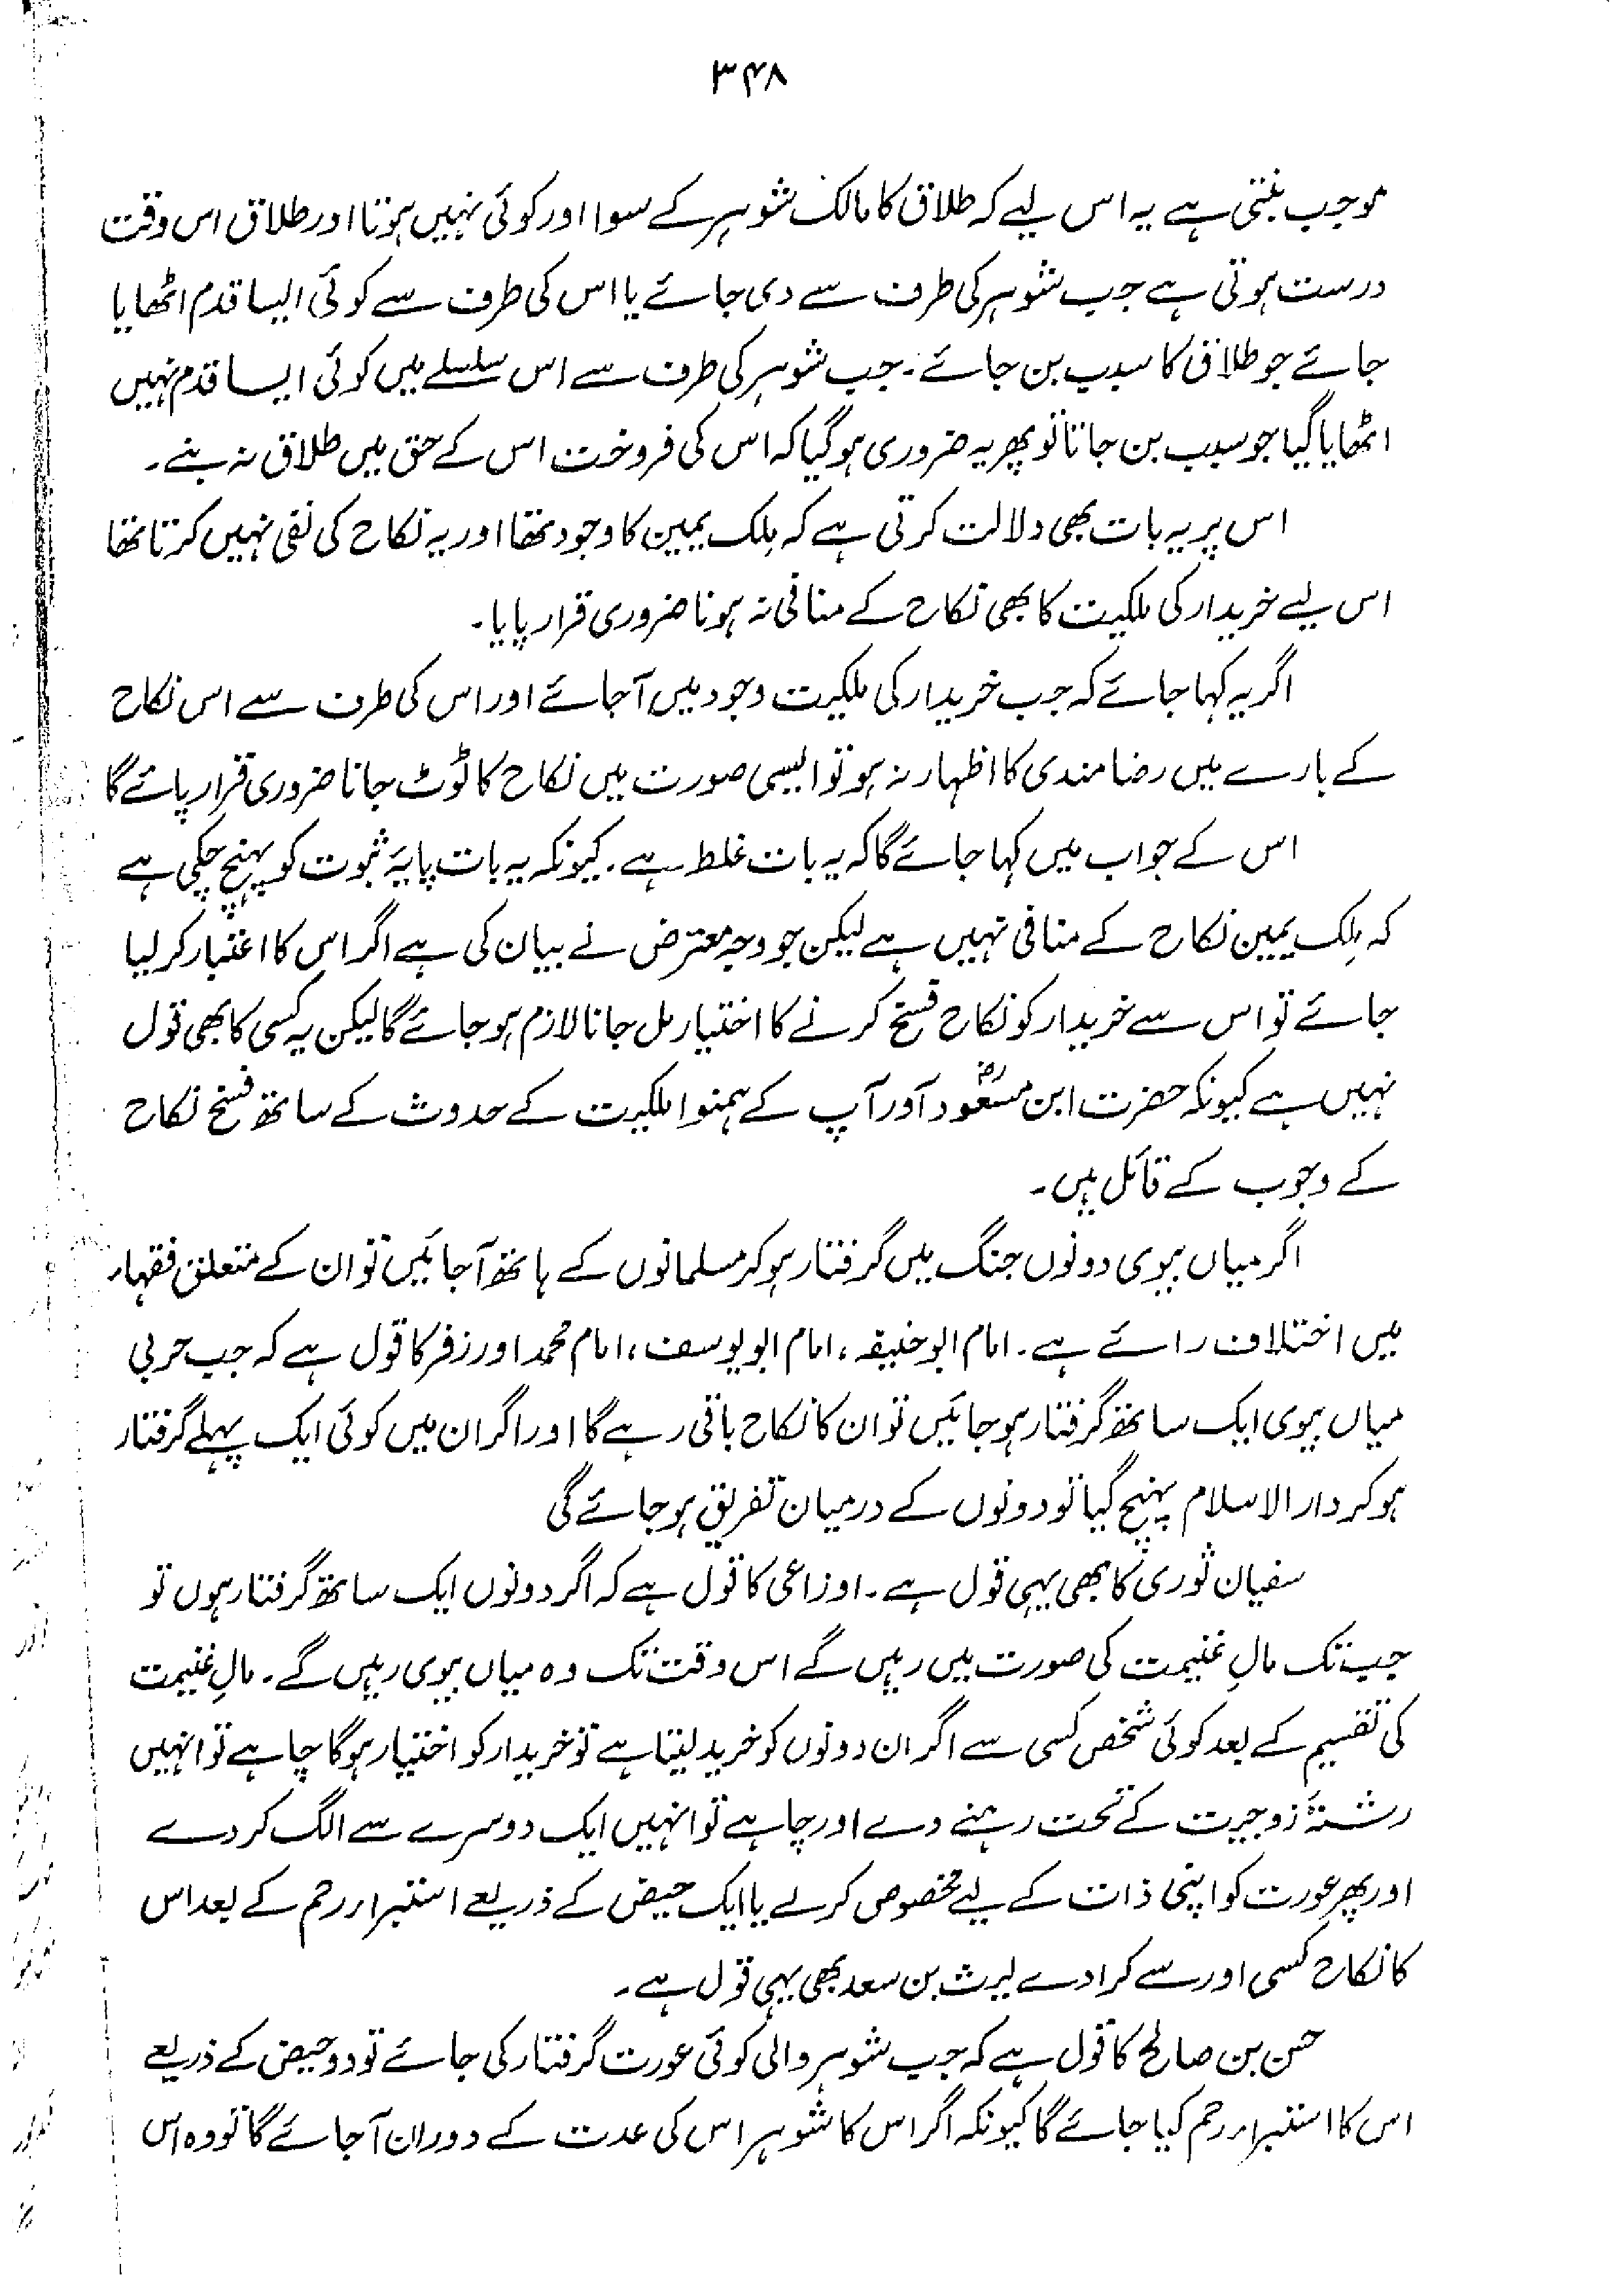 ۳۴۸
موجب بنتی ہے یہ اس لیے کہ طلاق کا مالک شوہر کے سوا اور کوئی نہیں ہوتا اور طلاق اس وقت
درست ہوتی ہے جب شوہر کی طرف سے دی جائے یا اس کی طرف سے کوئی ایسا قدم اٹھایا
جائے جو طلاق کا سبب بن جائے۔ جب شوہر کی طرف سے اس سلسلے میں کوئی ایسا قدم نہیں
اٹھایا گیا جو سبب بن جاتا تو پھر یہ ضروری ہو گیا کہ اس کی فروخت اس کے حق میں طلاق نہ بنے۔
اس پر یہ بات بھی دلالت کرتی ہے کہ مِلک یمین کا وجود تھا اور یہ نکاح کی نفی نہیں کرتا تھا
اس لیے خریدار کی ملکیت کا بھی نکاح کے منافی نہ ہونا ضروری قرار پایا۔
اگر یہ کہا جائے کہ جب خریدار کی ملکیت وجود میں آجائے اور اس کی طرف سے اس نکاح
کے بارے میں رضامندی کا اظہار نہ ہو تو ایسی صورت میں نکاح کا ٹوٹ جانا ضروری قرار پائے گا
اس کے جواب میں کہا جائے گا کہ یہ بات غلط ہے۔ کیونکہ یہ بات پایۂ ثبوت کو پہنچ چکی ہے
کہ مِلک یمین نکاح کے منافی نہیں ہے لیکن جو وجہ معترض نے بیان کی ہے اگر اس کا اعتبار کر لیا
جائے تو اس سے خریدار کو نکاح فسخ کرنے کا اختیار مل جانا لازم ہو جائے گا لیکن یہ کسی کا بھی قول
نہیں ہے کیونکہ حضرت ابن مسعودؓ اور آپ کے ہمنوا ملکیت کے حدوث کے ساتھ فسخ نکاح
کے وجوب کے قائل ہیں۔
اگر میاں بیوی دونوں جنگ میں گرفتار ہو کر مسلمانوں کے ہاتھ آجائیں تو ان کے متعلق فقہاء
میں اختلاف رائے ہے۔ امام ابو حنیفہ، امام ابو یوسف، امام محمد اور زفر کا قول ہے کہ جب حربی
میاں بیوی ایک ساتھ گرفتار ہو جائیں تو ان کا نکاح باقی رہے گا اور اگر ان میں کوئی ایک پہلے گرفتار
ہو کر دار الاسلام پہنچ گیا تو دونوں کے درمیان تفریق ہو جائے گی
سفیان ثوری کا بھی یہی قول ہے۔ اوزاعی کا قول ہے کہ اگر دونوں ایک ساتھ گرفتار ہوں تو
جب تک مالِ غنیمت کی صورت میں رہیں گے اس وقت تک وہ میاں بیوی رہیں گے۔ مالِ غنیمت
کی تقسیم کے بعد کوئی شخص کسی سے اگر ان دونوں کو خرید لیتا ہے تو خریدار کو اختیار ہوگا چاہے تو انہیں
رشتۂ زوجیت کے تحت رہنے دے اور چاہے تو انہیں ایک دوسرے سے الگ کر دے
اور پھر عورت کو اپنی ذات کے لیے مخصوص کر لے یا ایک حیض کے ذریعے استبراء رحم کے بعد اس
کا نکاح کسی اور سے کرا دے لیث بن سعد بھی یہی قول ہے۔
حسن بن صالح کا قول ہے کہ جب شوہر والی کوئی عورت گرفتار کی جائے تو دو حیض کے ذریعے
اس کا استبراء رحم کیا جائے گا کیونکہ اگر اس کا شوہر اس کی عدت کے دوران آجائے گا تو وہ اس